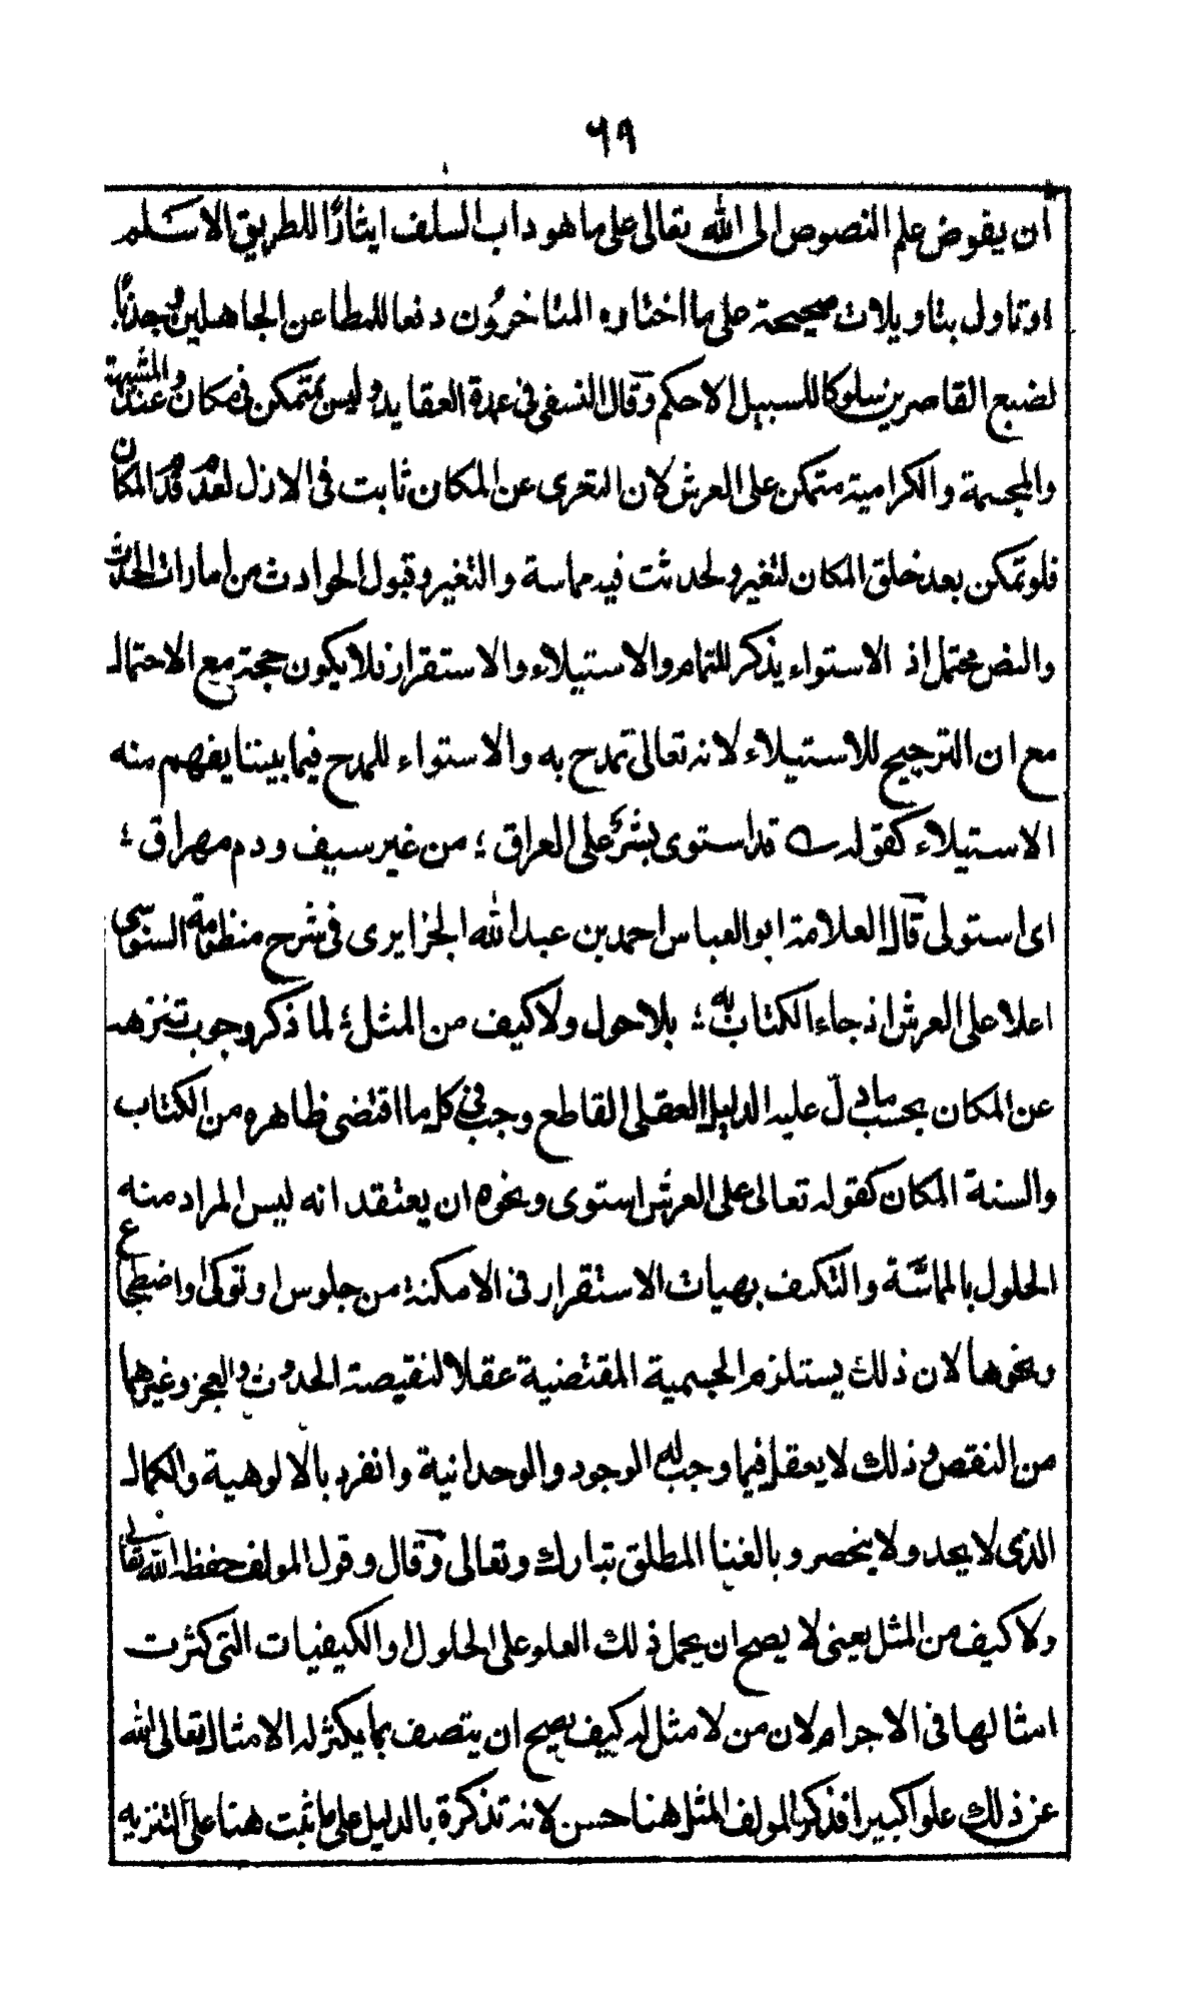 ٦٩
ان يفوض علم النصوص الى الله تعالى على ما هو داب السلف ايثارًا للطريق الاسلم
او تاول بتاويلات صحيحة على ما اختاره المتاخرون دفعا للمطاعن الجاهلين وجذبًا
لضبع القاصرين سلوكا للسبيل الاحكم وقال النسفى فى عمدة العقايد وليس بمتمكن فى مكان وعند المشبهة
والمجسمة والكرامية متمكن على العرش لان التعرى عن المكان ثابت فى الازل لعدم قدم المكان
فلو تمكن بعد خلق المكان لتغير ولحدثت فيه مماسة والتغير وقبول الحوادث من امارات الحدث
والنص محتمل اذ الاستواء يذكر للتمام والاستيلاء والاستقرار فلا يكون حجة مع الاحتمال
مع ان الترجيح للاستيلاء لانه تعالى تمدح به والاستواء للمدح فيما بيننا يفهم منه
الاستيلاء كقوله قد استوى بشر على العراق ؛ من غير سيف ودم مهراق ؛
اى استولى قال العلامة ابو العباس احمد بن عبد الله الجزايرى فى شرح منظومة السنوسى
اعلا على العرش اذ جاء الكتاب به ؛ بلا حول ولا كيف من المثل ؛ لما ذكر وجوب تنزهه
عن المكان بحسب ما دلّ عليه الدليل العقلى القاطع وجب فى كل ما اقتضى ظاهره من الكتاب
والسنة المكان كقوله تعالى على العرش استوى ونحوه ان يعتقد انه ليس المراد منه
الحلول بالمماسّة والتكيف بهيات الاستقرار فى الامكنة من جلوس او توكى او اضطجاع
ونحوها لان ذلك يستلزم الجسمية المقتضية عقلا لنقيصة الحدوث والعجز وغيرهما
من النقص وذلك لا يعقل فيما وجب له الوجود والوحدانية وانفرد بالالوهية والكمال
الذى لا يحد ولا ينحصر وبالغنا المطلق تبارك وتعالى وقال وقول المولف حفظه الله تعالى
ولا كيف من المثل يعنى لا يصح ان يحمل ذلك العلو على الحلول او الكيفيات التى كثرت
امثالها فى الاجرام لان من لا مثل له كيف يصح ان يتصف بما يكثر له الامثال تعالى الله
عن ذلك علوا كبيرا فذكر المولف المثل هنا حسن لانه تذكرة بالدليل على ما ثبت هنا على التنزيه